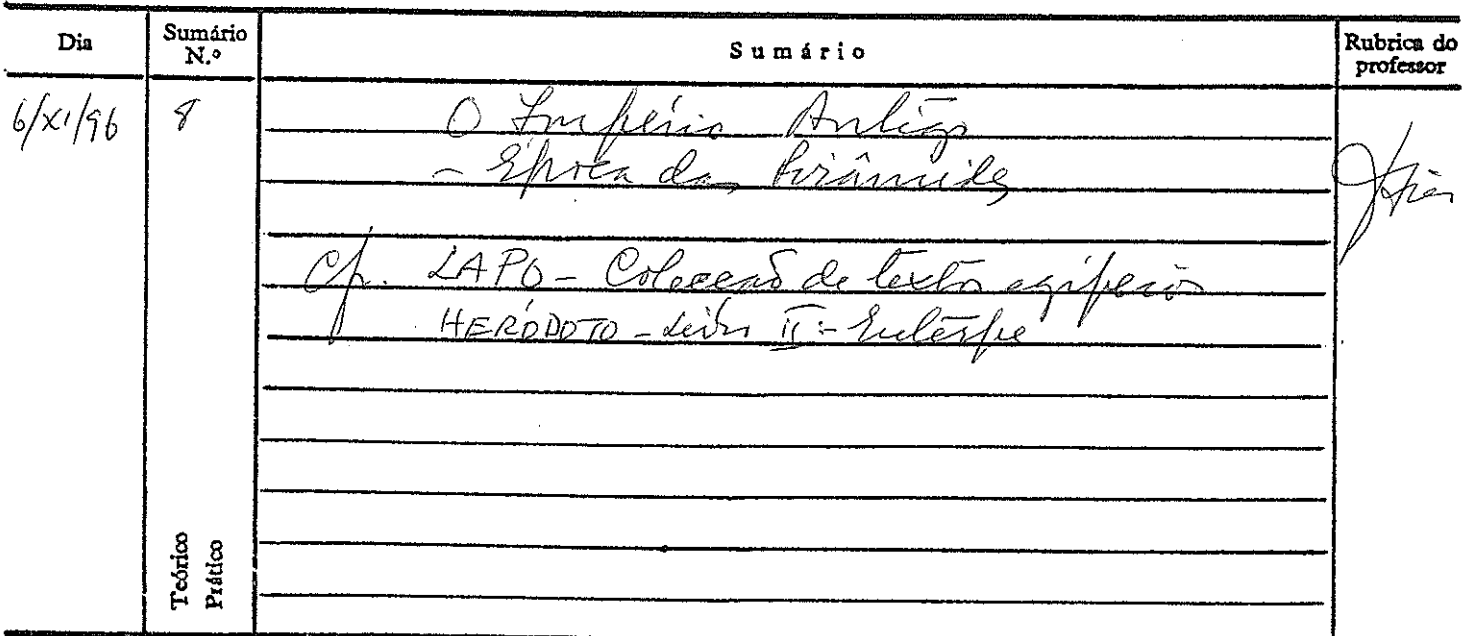 Dia Sumário N.º Sumário Rubrica do professor
6/XI/96 8 O Império Antigo
- Época das Pirâmides
Cf. LAPO - Colecção de textos egípcios
HERÓDOTO - Livro II - Euterpe
Teórico
Prático